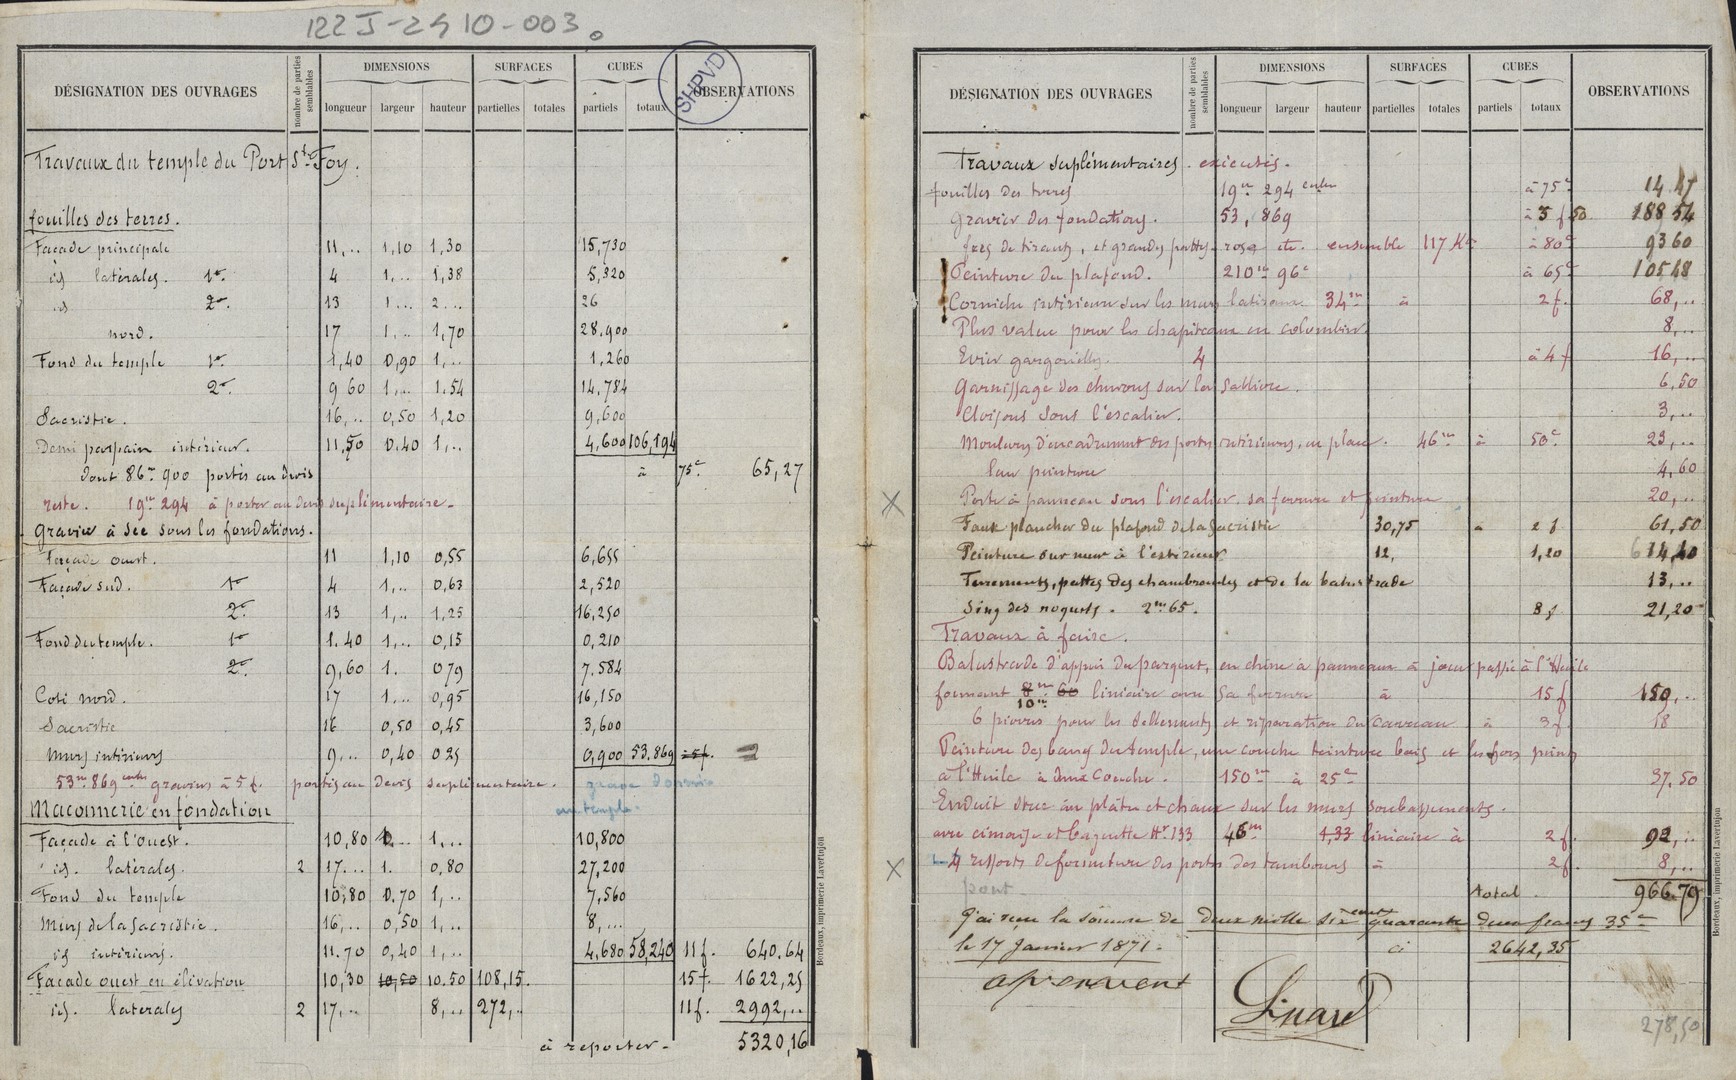 122 J-2S10-003.
SHPVD
DÉSIGNATION DES OUVRAGES nombre de parties semblables DIMENSIONS SURFACES CUBES OBSERVATIONS
longueur largeur hauteur partielles totales partiels totaux
Travaux du temple du Port Ste Foy.
fouilles des terres.
Façade principale 11,.. 1,10 1,30 15,730
id latérales. 1re 4 1,.. 1,38 5,520
id 2e 13 1... 2... 26
nord. 17 1,.. 1,70 28.900
Fond du temple 1re 1,40 0,90 1,.. 1,260
2e 9 60 1,.. 1.54 14,784
Sacristie. 16,.. 0,50 1,20 9,600
Demi parpain intérieur. 11,50 0,40 1,.. 4,600 106,194
dont 86m 900 portés au devis à 75c 65,27
reste. 19m 294 à porter au devis suplémentaire.
Gravier à sec sous les fondations.
Façade ouest. 11 1,10 0,55 6,655
Façade sud. 1re 4 1,.. 0,63 2,520
2e 13 1,.. 1,25 16,250
Fond du temple. 1re 1.40 1,.. 0,15 0,210
2e 9,60 1. 0 79 7.584
Coté nord. 17 1,.. 0,95 16,150
Sacristie 16 0,50 0,45 3,600
Murs intérieurs 9,.. 0,40 0 25 0,900 53.869 à 5f.
53m 869 cubes graviers à 5 f. portés au devis suplémentaire.
au temple.
Maconnerie en fondation
Façade à l'ouest. 10,80 1... 1,... 10,800
id. latérales. 2 17... 1. 0,80 27,200
Fond du temple 10,80 0.70 1,.. 7,560
Murs de la Sacristie. 16,.. 0,50 1,.. 8,...
id intérieurs. 11.70 0,40 1,.. 4,680 58,240 11 f. 640.64
Façade ouest en élévation 10,30 10,50 10.50 108,15. 15 f. 1622,25
id. laterales 2 17,.. 8,.. 272,.. 11 f. 2992,..
à reporter. 5320,16
Bordeaux, imprimerie Lavertujon
DÉSIGNATION DES OUVRAGES nombre de parties semblables DIMENSIONS SURFACES CUBES OBSERVATIONS
longueur largeur hauteur partielles totales partiels totaux
Travaux suplémentaires. executés.
fouilles des terres 19m 294 cubes à 75c 14 47
Gravier des fondations. 53, 869 à 3 f 50 188 54
fers de tirants, et grandes pattes, rosa etc. ensemble 117 K à 80c 93 60
Peinture du plafond. 210m 96c à 65c 105 48
Corniche intérieure sur les murs latéraux 34m à 2 f. 68,..
Plus value pour les chapiteaux en colombier. 8,..
Evier gargouilles. 4 à 4 f 16,..
Garnissage des chevrons sur les sablière. 6,50
Cloisons sous l'escalier. 3,..
Moulures d'encadrement des portes intérieures, en place. 46m à 50c 23,..
leur peinture 4,60
Porte à panneau sous l'escalier sa ferrure et peinture 20,..
Faux plancher du plafond de la Sacristie 30,75 a 2 f 61,50
Peinture sur mur à l'extérieur 12, 1,20 14,40
Ferrements, pattes des chambranles et de la balustrade 13,..
Zing des noquets. 2m 65. 8 f 21,20
Travaux à faire.
Balustrade d'appui du parquet, en chêne à panneaux à jour passée à l'Huile
formant 8m 60 linéaire avec sa ferrure à 15 f 150,..
10m
6 pierres pour les scellements et réparation du carreau à 3 f. 18
Peinture des bancs du temple, une couche teinture bois et les fers peints
à l'Huile à deux Couche. 150m à 25c 37.50
Enduit stuc au plâtre et chaux sur les murs soubassements.
avec cimaise et baguette Hr 1,33 46m 1,33 linéaire à 2 f. 92,..
4 ressorts de fermeture des portes des tambours à 2 f. 8,..
total. 966.79
J'ai reçu la somme de deux mille six cents quarante deux francs 35c
le 17 Janvier 1871. ci 2642,35
Linard
278,50
Bordeaux, imprimerie Lavertujon